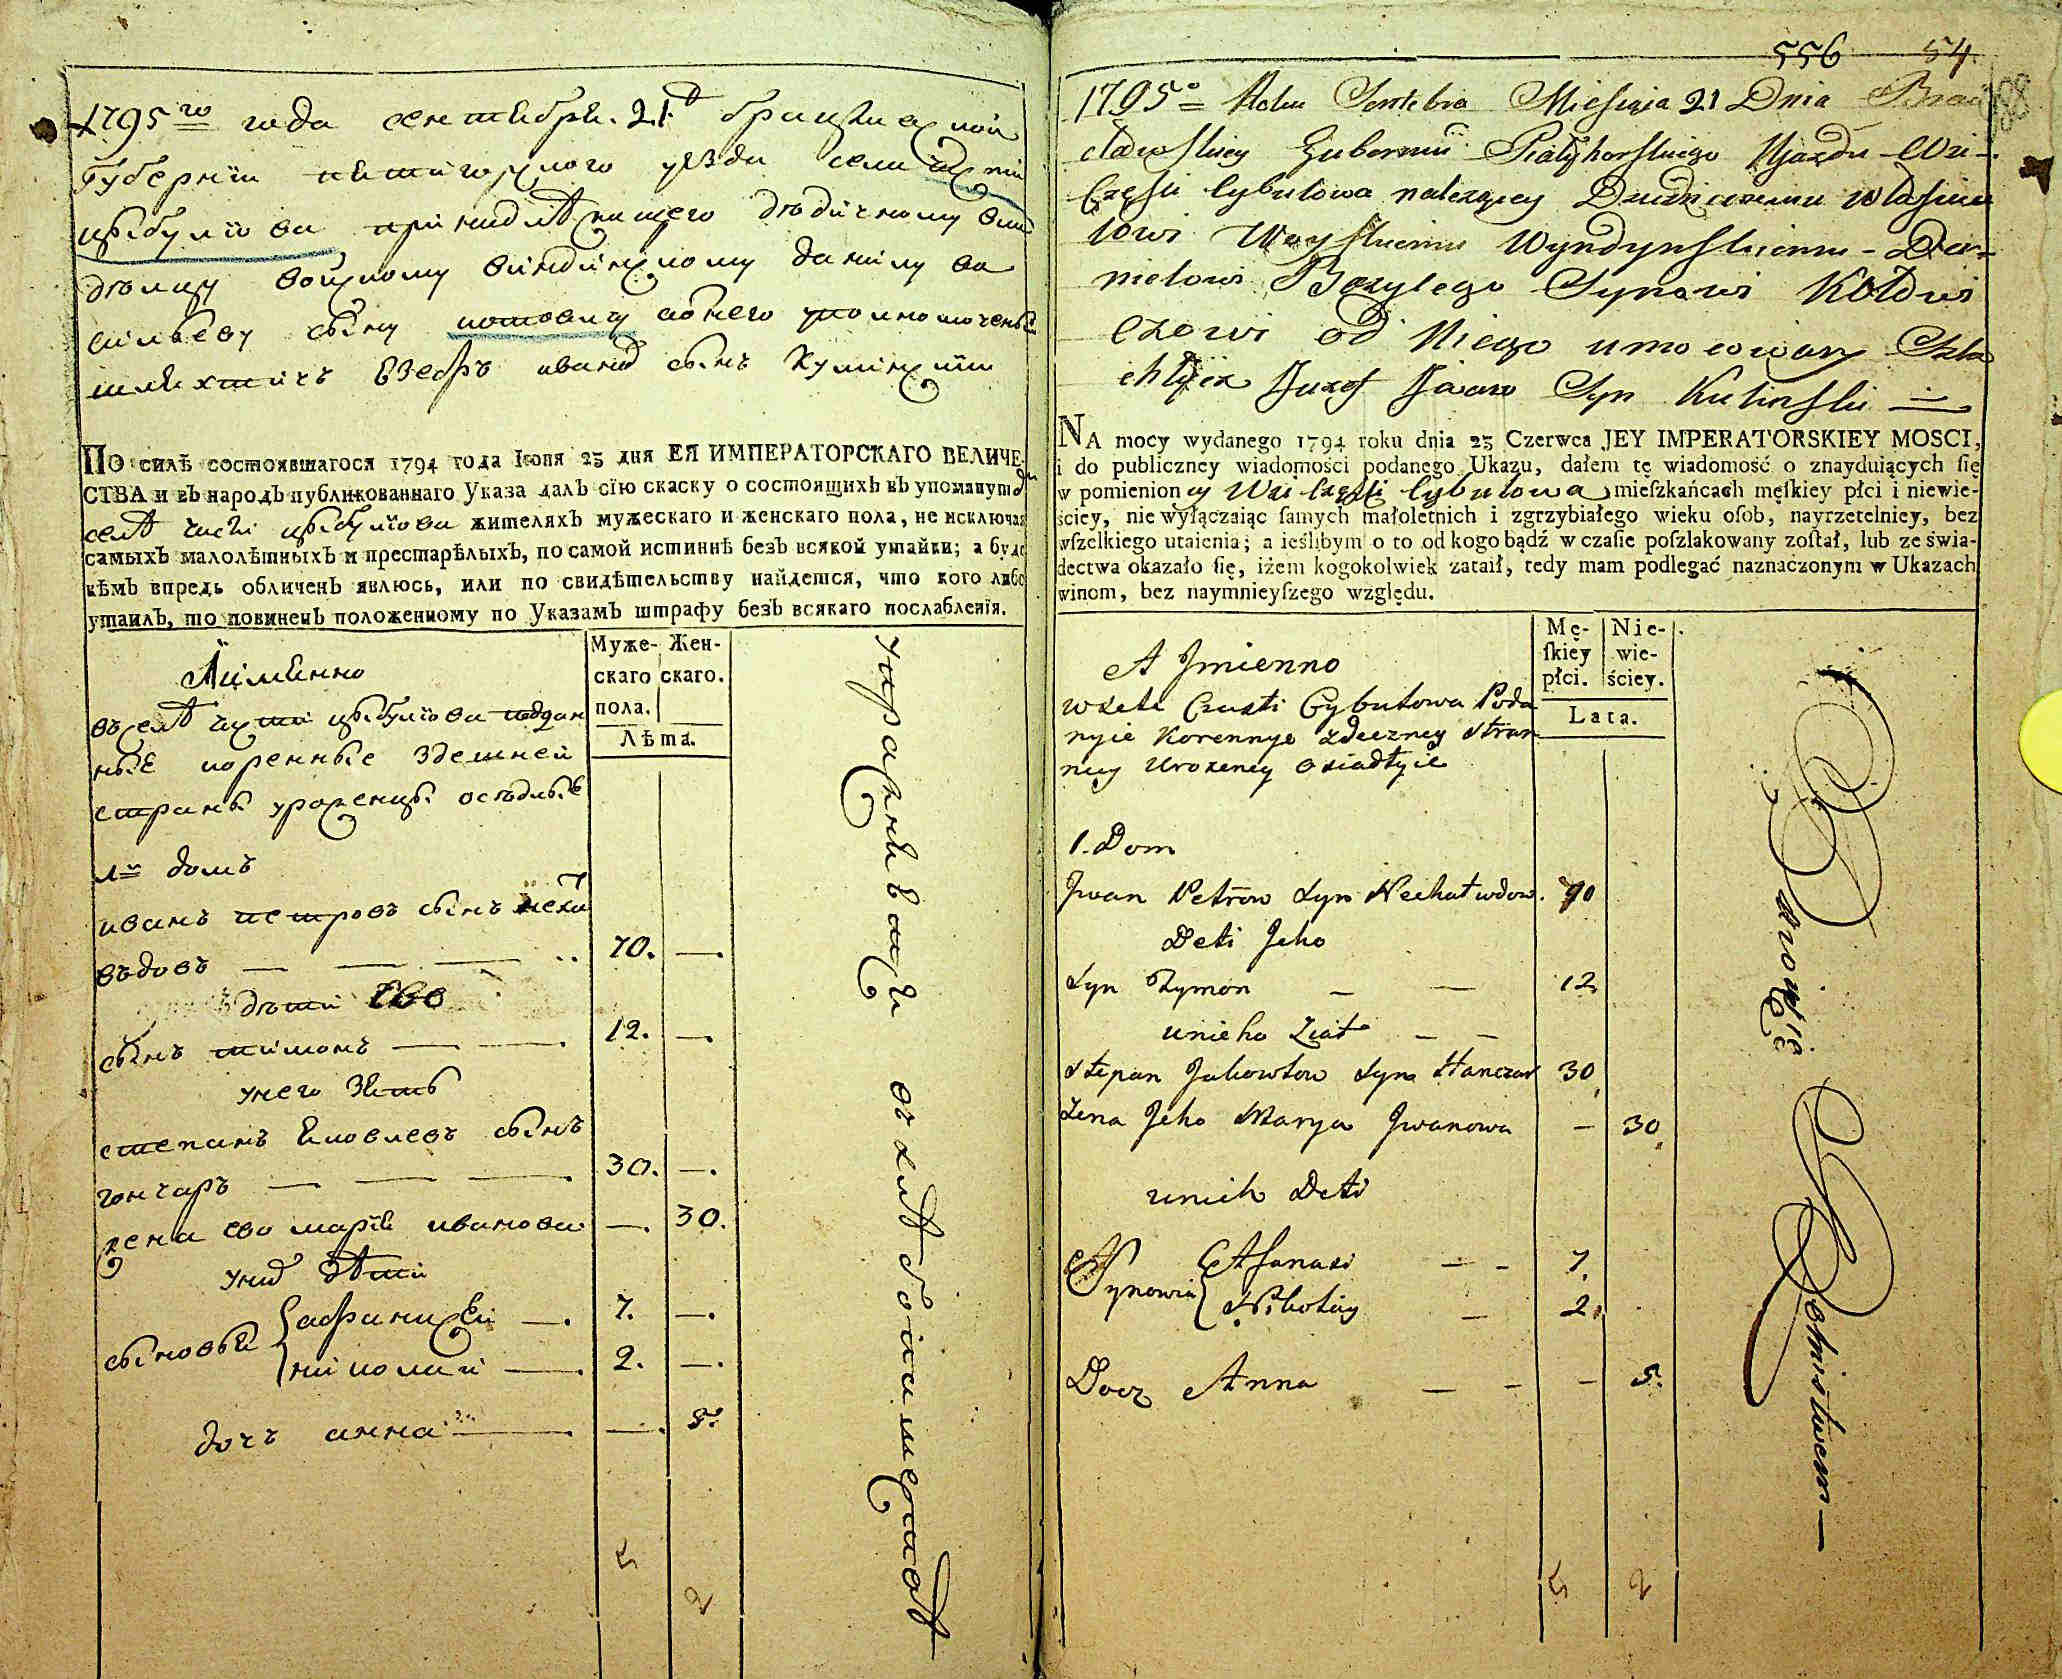 1795го года сентября 21 д брацлавской
губернїи пятигорского уезда села части
цыбулїова принадлѣжащего дѣдичному вла
дѣлцу войскому виндинскому данилу ва
сильеву сыну котовичу от него уполномоченый
шляхтичъ юзефъ иванов сынъ кулинскїй
ПО силѣ состоявшагося 1794 года Iюня 23 дня ЕЯ ИМПЕРАТОРСКАГО ВЕЛИЧЕ-
СТВА и въ народъ публикованнаго Указа далъ сїю скаску о состоящихъ въ упомянутой
селѣ части цыбулїова жителяхъ мужескаго и женскаго пола, не исключая
самыхъ малолѣтныхъ и престарѣлыхъ, по самой истиннѣ безъ всякой утайки; а буде
кѣмъ впредь обличенъ явлюсь, или по свидѣтельству найдется, что кого либо
утаилъ, то повиненъ положенному по Указамъ штрафу безъ всякаго послабленїя.
Аимянно
въ селѣ части цыбулїова поддан
ные коренные здешней
страны уроженцы оседлые
Муже-скаго пола. Жен-скаго.
Лѣта.
1й домъ
иванъ петровъ сынъ неха
въдовъ 70. —.
дѣти Ево
сынъ тимонъ 12. —.
унего зять
степанъ яковлевъ сынъ
гончаръ 30. —.
жена ево марїя иванова —. 30.
уних дѣти
сыновья { афанасей — 7. —.
николай — 2. —.
дочь анна — —. 5.
5 2
556 54
1795o Roku Sentebra Miesiąca 21 Dnia Brac
ławskiey Gubernii Piatyhorskiego Ujazdu Wsi
Części Cybulowa należącey Dziedzicznemu Własicie
lowi Woyskiemu Wyndynskiemu - Da-
nielowi Bazylego Synowi Kotowi
czowi od Niego umocowany Szla
chcic Juzef Iwanow Syn Kulinski
NA mocy wydanego 1794 roku dnia 23 Czerwca JEY IMPERATORSKIEY MOSCI,
i do publiczney wiadomości podanego Ukazu, dałem tę wiadomość o znayduiących ſię
w pomienioney Wsi Części Cybulowa mieſzkańcach męſkiey płci i niewie-
ściey, nie wyłączaiąc ſamych małoletnich i zgrzybiałego wieku oſob, nayrzetelniey, bez
wſzelkiego utaienia; a ieślibym o to od kogo bądź w czaſie poſzlakowany zoſtał, lub ze świa-
dectwa okazało ſię, iżem kogokolwiek zataił, tedy mam podlegać naznaczonym w Ukazach
winom, bez naymnieyſzego względu.
A Jmienno
wsele Czasti Cybulowa Poda
nyie Korennye zdeszney stran
ney Urozency Osiadłyie
Mę-ſkiey płci. Nie-wie-ściey.
Lata.
1. Dom
Jwan Petrow Syn Nechaiwdow. 70
Deti Jeho
Syn Tymon — — 12
unieho Ziat — —
Stepan Jakowlow Syn Hanczar 30
Żena Jeho Marya Jwanowa — 30
unich Deti
Synowia { Afanasi — — 7.
Nikołay — 2.
Docz Anna — — — 5.
5 2